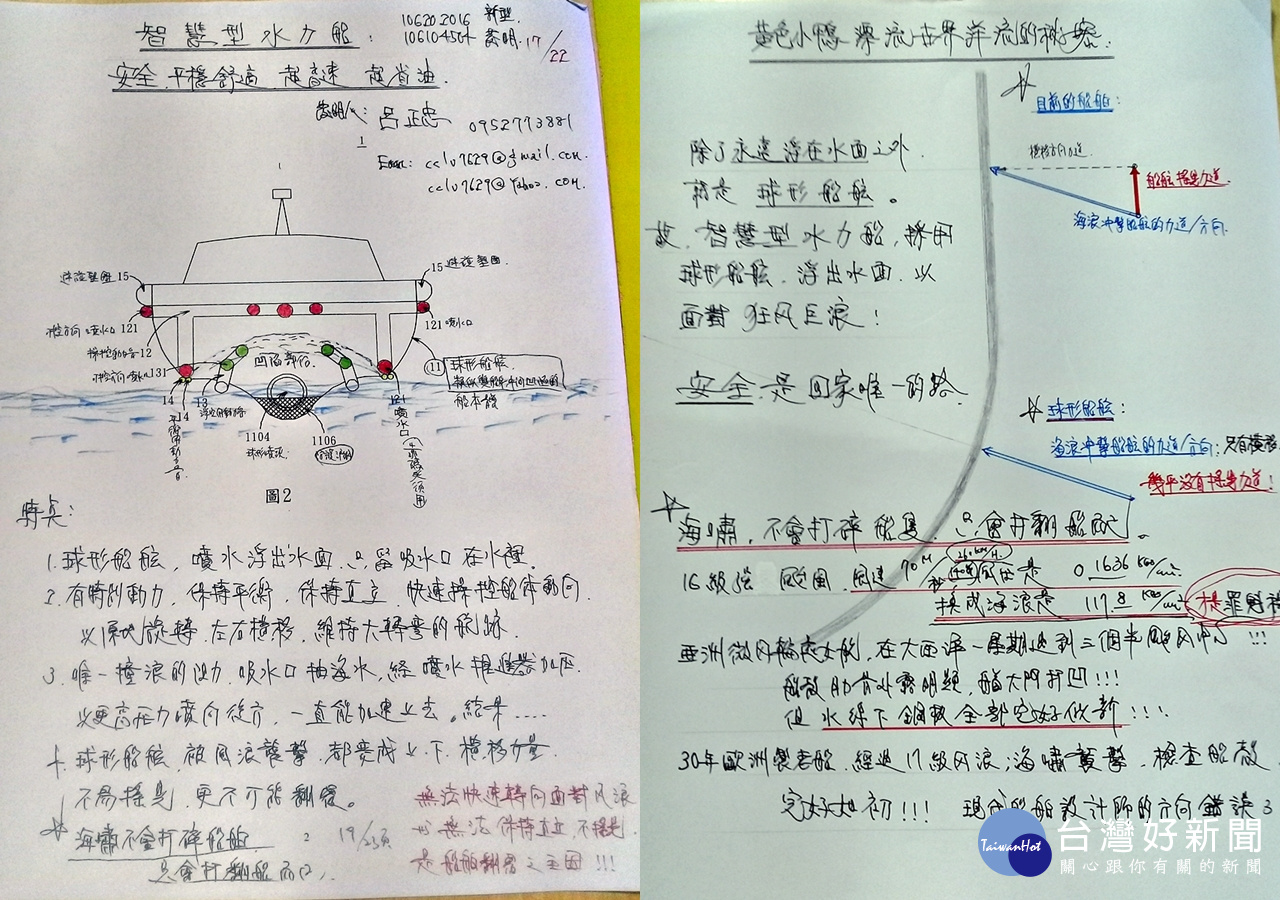 智慧型水力船:
10620.2016 新型
106104504 發明 17/22
安全.平穩舒適 超高速 超省油.
發明人: 呂正忠 0952773881
Email: cclu7629@gmail.com.
cclu7629@yahoo.com.
15
15
121
121 噴水口
12
131
凹陷部位
11 球形船舷
船本體
14
14
13
1104
1106
球形噴流
噴水口
圖2
特点:
1.球形船舷, 噴水浮出水面.只留吸水口在水裡.
2.有特別動力, 保持平衡, 保持直立, 快速操控船体動向.
以原地旋轉.左右橫移.維持大轉彎的航跡.
3.唯一撞浪的阻力.吸水口抽海水,經噴水推進器加压.
以更高压力噴向後方,一直能加速上去。結果....
4.球形船舷,被风浪襲擊,都变成上、下、橫移力量.
不易搖晃,更不可能翻覆。
☆海嘯不會打碎船舶.
只會打翻船而已.
無法快速轉向面對风浪
也無法保持直立,不搖晃.
是船舶翻覆之主因!!!
黃色小鴨漂流世界洋流的秘密:
☆目前的船舶:
船舷搖晃力道.
海浪冲擊船舷的力道/方向.
除了永遠浮在水面之外.
就是球形船舷。
故.智慧型水力船,採用
球形船舷.浮出水面.以
面對狂风巨浪!
安全.是回家唯一的路.
☆球形船舷:
海浪冲擊船舷的力道/方向:只有橫移
幾乎沒有搖晃力道!
☆海嘯,不會打碎船隻.只會打翻船而已。
16級強颱風.風速70M/秒 风压是 0.1636 KGs/cm².
換成海浪是 117.8 KGs/cm² 才是罪魁禍
亞洲微风輪處女航,在大西洋一星期遇到三個半颶风冲 !!!
船殼肋骨外露明顯,船大門打凹!!!
但水線下鋼板全部完好似新!!!.
30年歐洲製老船.經過17級风浪;海嘯襲擊,檢查船殼.
完好如初!!! 現代船舶設計師的方向錯誤了
TaiwanHot
台灣好新聞
關心跟你有關的新聞